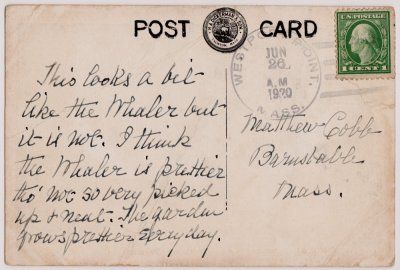 POST CARD
WESTPORT POINT.
JUN
26
A.M
1920
MASS.
U.S. POSTAGE
1 CENT 1
This looks a bit
like the Whaler but
it is not. I think
the Whaler is prettier
tho' not so very picked
up & neat. The garden
grows prettier every day.
Matthew Cobb
Barnstable
Mass.